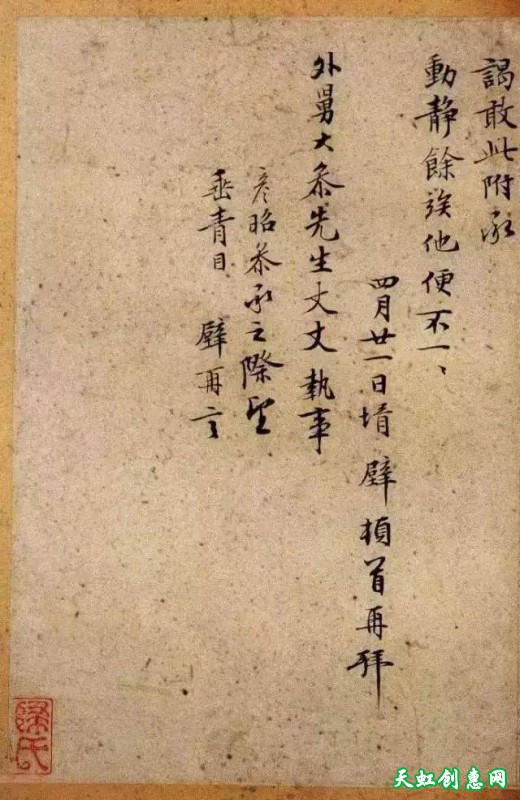 謁敢此附承
動靜餘竢他便不一、
四月廿一日壻壁頓首再拜
外舅大參先生丈丈執事
彥昭參承之際望
垂青目 壁再言
天虹创惠网